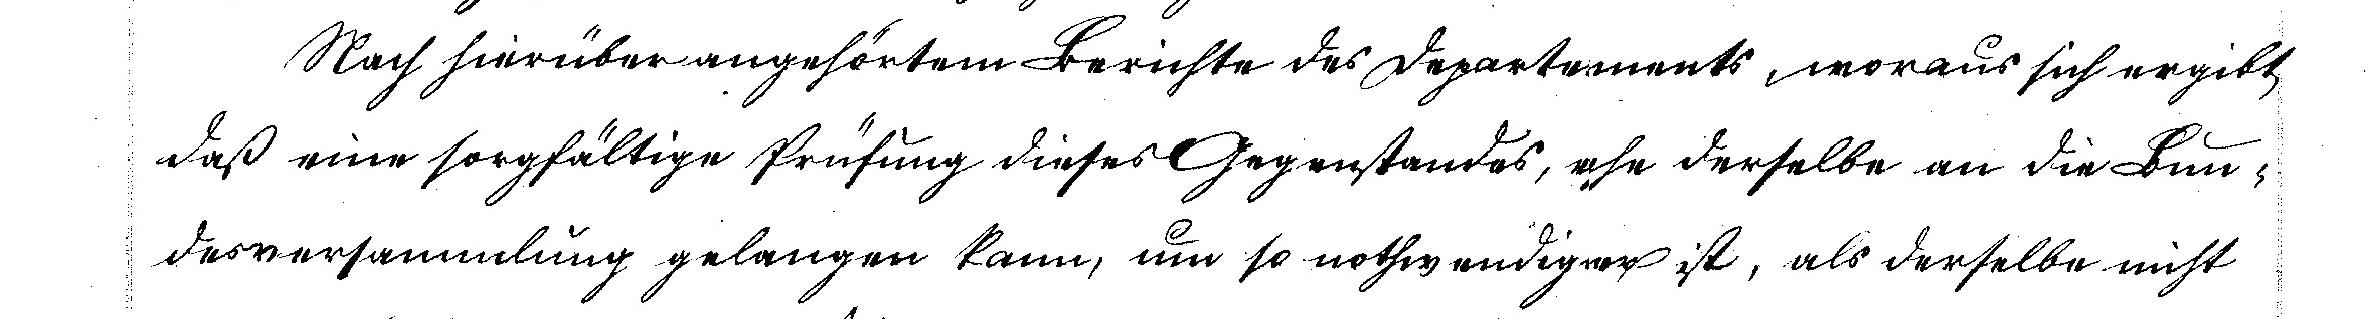 Nach hierüber angehörtem Berichte des Departements, woraus sich ergibt,
daß eine sorgfältige Prüfung dieses Gegenstandes, ehe derselbe an die Bun-
desversammlung gelangen kann, um so nothwendiger ist, als derselbe nicht